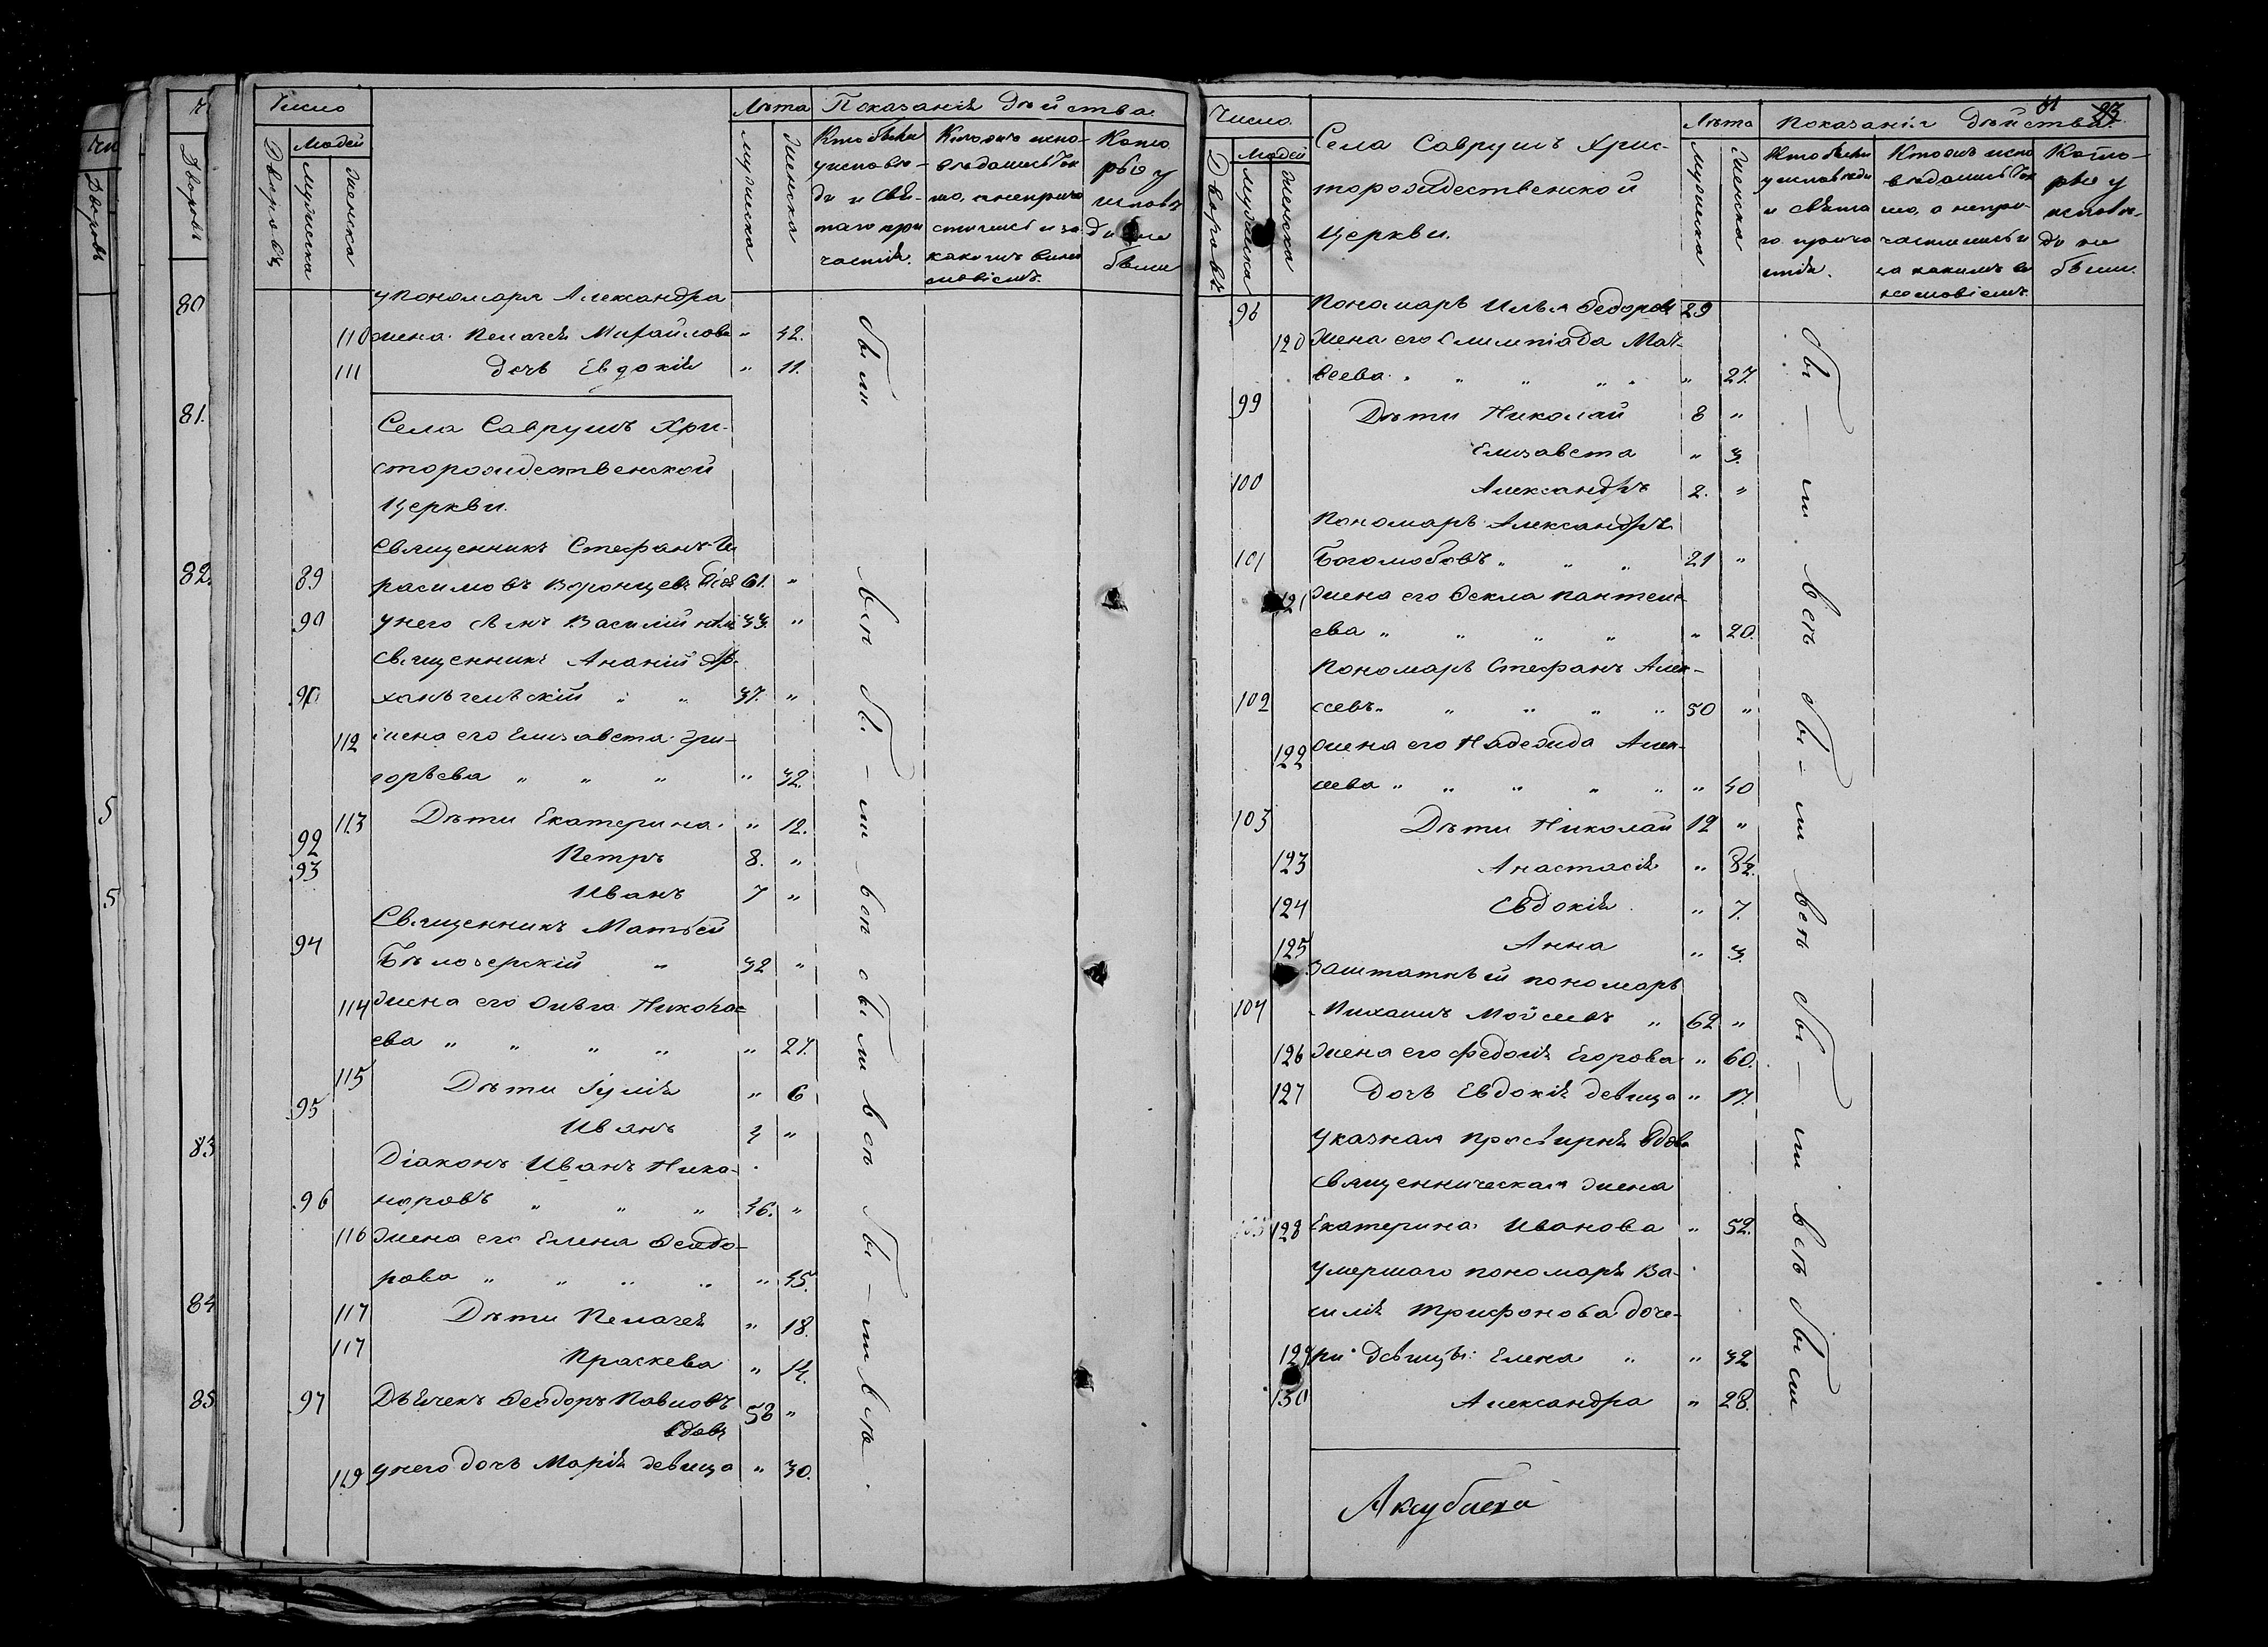 Число
Лѣта
Показанія дѣйства.
Дворовъ
Людей
Мужеска
Женска
Мужеска
Женска
Кто были
у исповѣ-
ди и Свя-
таго при
частія.
Кто изъ испо-
вѣдались ток
мо, а неприча
стились и за
какимъ вино
словіемъ.
Кото
рые у
исповѣ
ди не
были
у пономаря Александра
110 жена Пелагея Михайлова " 42.
111 дочь Евдокія " 11.
Села Саврушъ Хри-
сторождественской
Церкви.
Священникъ Стефанъ
89 расимовъ Воронцевъ 61. "
90 у него сынъ Василій 33. "
Священникъ Ананій Ар-
91 хангельскій " " 37. "
112 жена его Елизавета Гри-
горьева " " " " 32.
113 Дѣти Екатерина " 12.
92 Петръ 8. "
93 Иванъ 7 "
Священникъ Матвей
94 Бѣлозерскій " 32 "
114 жена его Ольга Никола=
ева " " " " " 27.
115 Дѣти Іулія " 6
95 Иванъ 4 "
Діаконъ Иванъ Ника-
96 норовъ " " " 46. "
116 жена его Елена Феодо-
рова " " " " " 45.
117 Дѣти Пелагея " 18.
117 Праскева " 14.
97 Дьячекъ Феодоръ Павловъ 58 "
вдовъ
119 у него дочь Марія девица " 30.
были
всѣ бы-ли всѣ были всѣ бы-ли всѣ
80
81.
82.
83
84
85
5
5
Дворовъ
Дворовъ
81
Число
Лѣта
Показанія дѣйства.
Дворовъ
Людей
Мужеска
Женска
Села Саврушъ Хрис-
торождественской
Церкви.
Мужеска
Женска
Кто были
у исповеди
и свята
го прича
стія.
Кто изъ испо
ведались ток
мо, а непри-
частились и
за какимъ ви
нословіемъ.
Кото-
рые у
исповѣ-
ди не
были.
98 Пономарь Илья Федоровъ 29
120 Жена его Олимпіада Мат-
веева " " " " " 27.
99 Дѣти Николай 8 "
Елизавета " 3.
100 Александръ 2. "
Пономарь Александръ
101 Боголюбовъ " " " 21 "
121 жена его Фекла Пантеле-
ева " " " " " 20.
Пономарь Стефанъ Алек-
102 сеевъ " " " " 50 "
122 жена его Надежда Алек-
сеева " " " " " " 40
103 Дѣти Николай 12 "
123 Анастасія "
124 Евдокія " 7.
125 Анна " 3.
Заштатный пономарь
104 Михаилъ Мойсеевъ " 62 "
126 жена его Федосія Егорова " 60.
127 дочь Евдокія девица " 17.
Указная просвирня вдова
Священническая жена
128 Екатерина Иванова " 52.
Умершаго пономаря Ва-
силія Трифонова доче-
129 ри девицы: Елена " " 32
130 Александра " 28.
бы-ли всѣ бы-ли всѣ бы-ли всѣ были